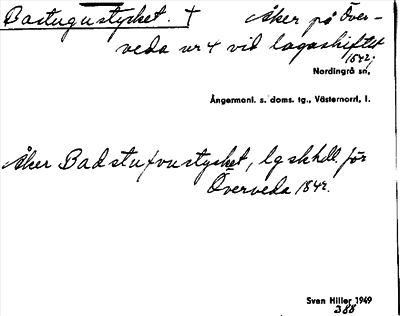 Bastugustycket. † Åker på Över-
veda nr 4 vid lagaskiftet
1842,
Nordingrå sn,
Ångermanl. s. doms. tg., Västernorrl, l.
Åker Badstufvustycket, lgskhdl. för
Överveda 1842.
Sven Hiller 1949
388